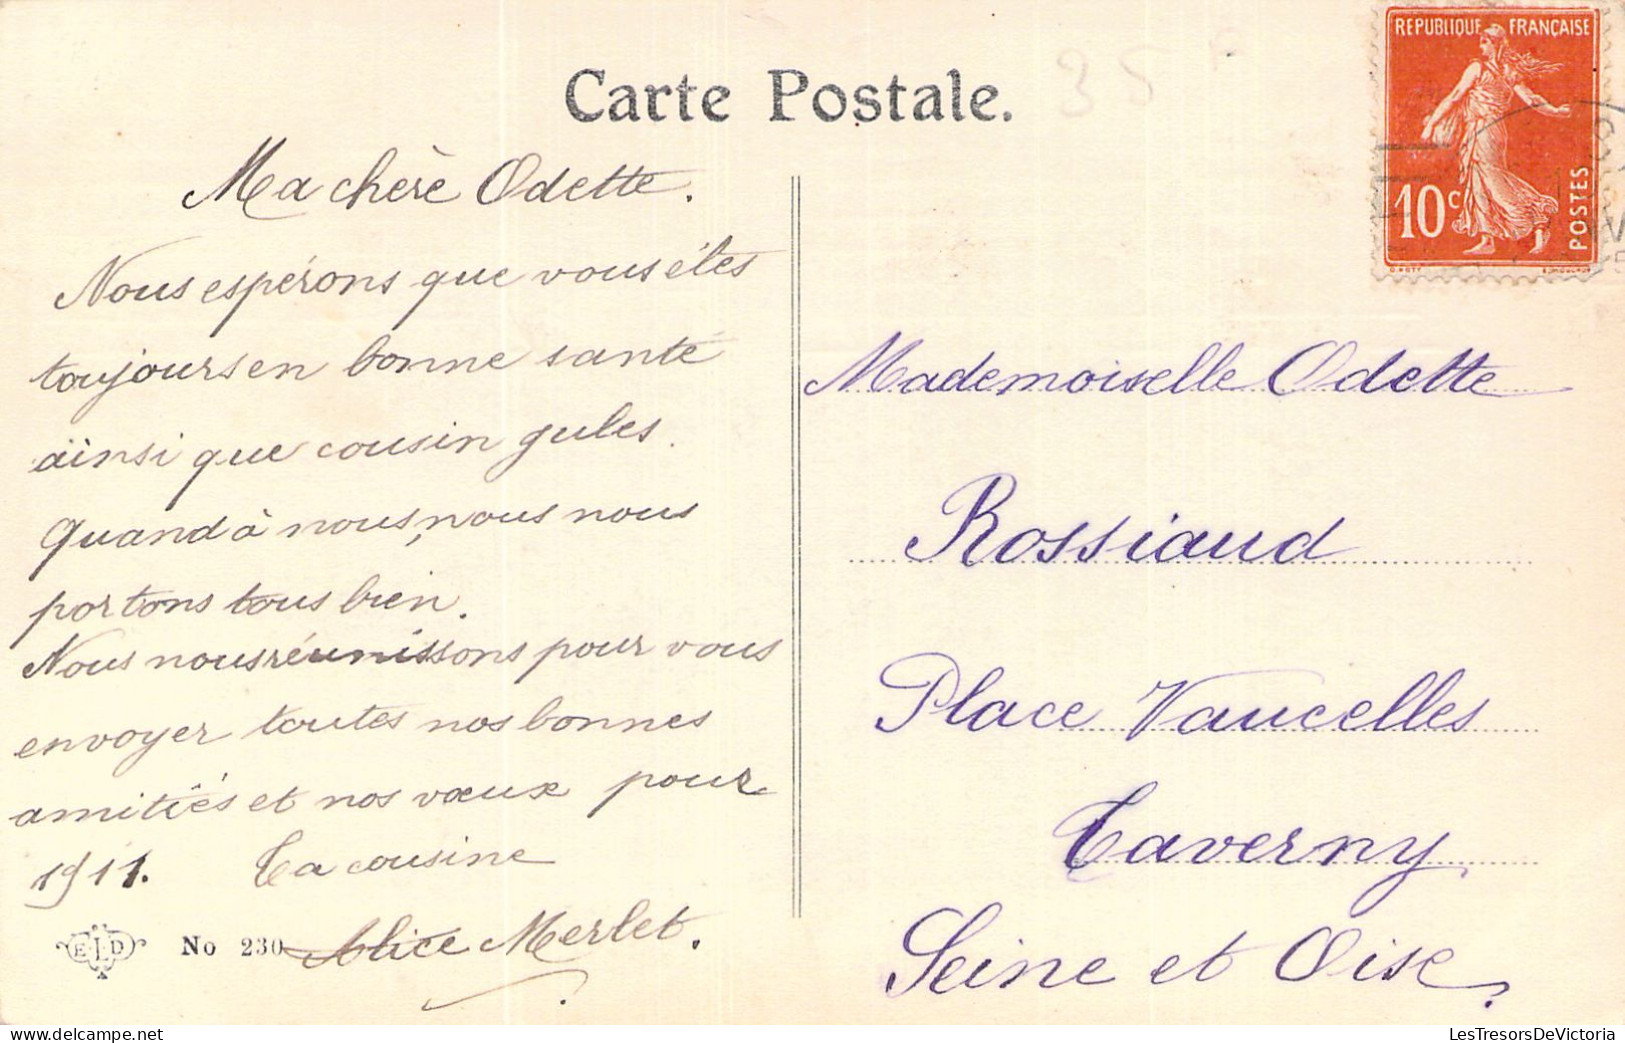 Carte Postale.
35 F
REPUBLIQUE FRANÇAISE
10c
POSTES
Ma chère Odette.
Nous espérons que vous êtes
toujours en bonne santé
ainsi que cousin Jules.
Quand à nous, nous nous
portons tous bien.
Nous nous réunissons pour vous
envoyer toutes nos bonnes
amitiés et nos vœux pour
1911. Ta cousine
Alice Merlet.
ELD No 230
Mademoiselle Odette
Rossiaud
Place Vaucelles
Taverny
Seine et Oise.
LesTresorsDeVictoria